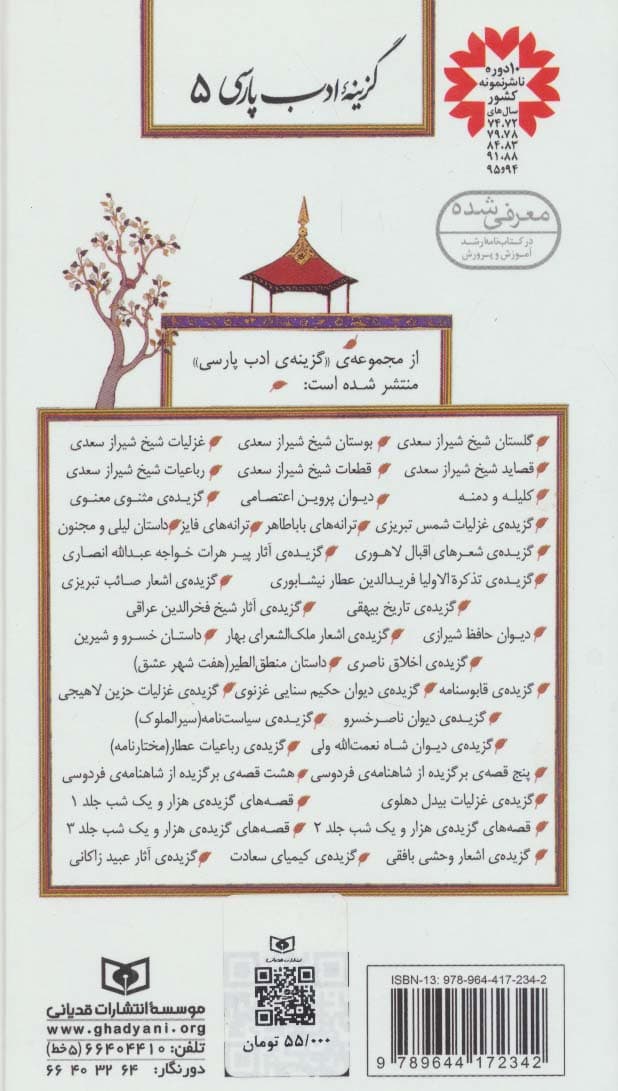 گزینهٔ ادب پارسی ۵
۱۰ دوره
ناشر نمونه
کشور
سال‌های
۷۴،۷۲
۷۹،۷۸
۸۴،۸۳
۹۱،۸۸
۹۴و۹۵
معرفی شده
در کتاب‌نامه‌ٔ رشد
آموزش و پرورش
از مجموعه‌ی «گزینه‌ی ادب پارسی»
منتشر شده است:
گلستان شیخ شیراز سعدی بوستان شیخ شیراز سعدی غزلیات شیخ شیراز سعدی
قصاید شیخ شیراز سعدی قطعات شیخ شیراز سعدی رباعیات شیخ شیراز سعدی
کلیله و دمنه دیوان پروین اعتصامی گزیده‌ی مثنوی معنوی
گزیده‌ی غزلیات شمس تبریزی ترانه‌های باباطاهر ترانه‌های فایز داستان لیلی و مجنون
گزیده‌ی شعرهای اقبال لاهوری گزیده‌ی آثار پیر هرات خواجه عبدالله انصاری
گزیده‌ی تذکرة الاولیا فریدالدین عطار نیشابوری گزیده‌ی اشعار صائب تبریزی
گزیده‌ی تاریخ بیهقی گزیده‌ی آثار شیخ فخرالدین عراقی
دیوان حافظ شیرازی گزیده‌ی اشعار ملک‌الشعرای بهار داستان خسرو و شیرین
گزیده‌ی اخلاق ناصری داستان منطق‌الطیر(هفت شهر عشق)
گزیده‌ی قابوسنامه گزیده‌ی دیوان حکیم سنایی غزنوی گزیده‌ی غزلیات حزین لاهیجی
گزیده‌ی دیوان ناصرخسرو گزیده‌ی سیاست‌نامه(سیرالملوک)
گزیده‌ی دیوان شاه نعمت‌الله ولی گزیده‌ی رباعیات عطار(مختارنامه)
پنج قصه‌ی برگزیده از شاهنامه‌ی فردوسی هشت قصه‌ی برگزیده از شاهنامه‌ی فردوسی
گزیده‌ی غزلیات بیدل دهلوی قصه‌های گزیده‌ی هزار و یک شب جلد ۱
قصه‌های گزیده‌ی هزار و یک شب جلد ۲ قصه‌های گزیده‌ی هزار و یک شب جلد ۳
گزیده‌ی اشعار وحشی بافقی گزیده‌ی کیمیای سعادت گزیده‌ی آثار عبید زاکانی
موسسهٔ انتشارات قدیانی
www.ghadyani.org
تلفن: ۶۶۴۰۴۴۱۰ (۵خط)
دورنگار: ۶۶ ۴۰ ۳۲ ۶۴
انتشارات قدیانی
۵۵/۰۰۰ تومان
ISBN-13: 978-964-417-234-2
9 789644 172342